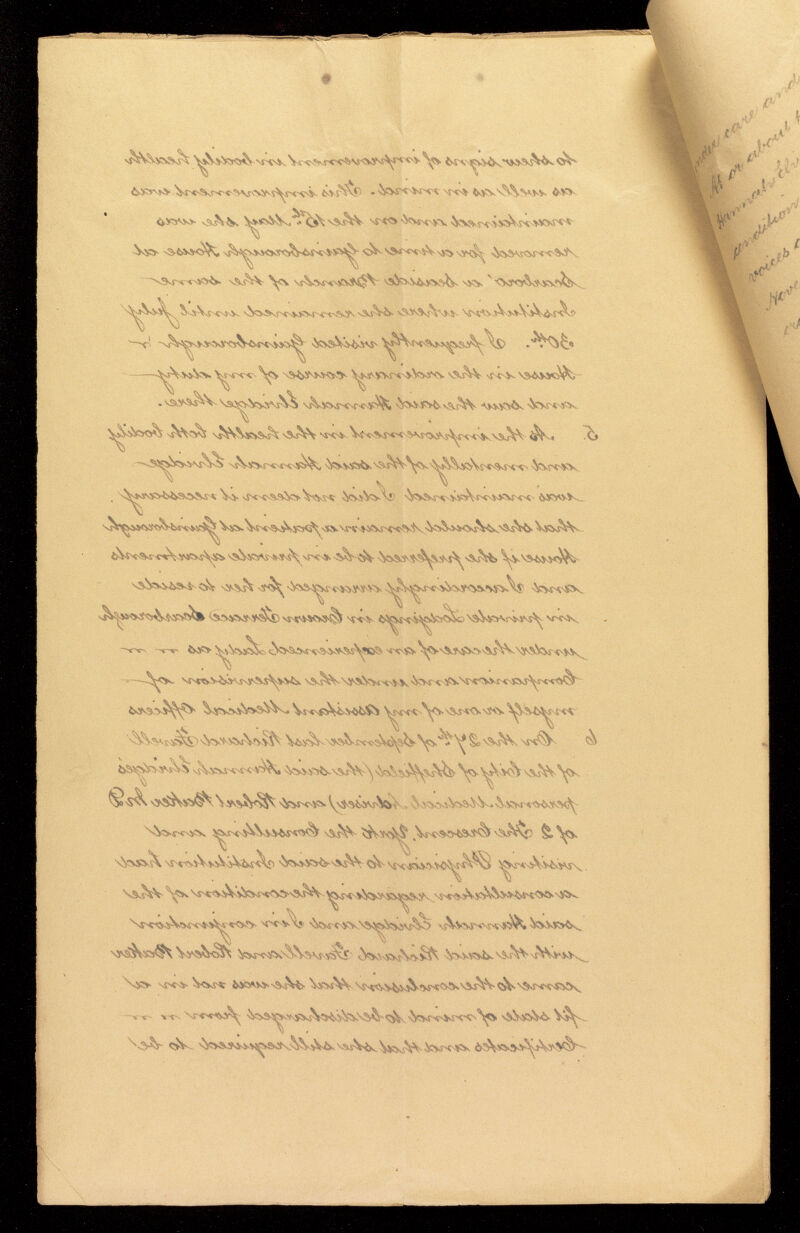 to shew signs of improvement in bodily health
as well as in mind. This improvement was
maintained and on the 15th. May she was
removed for a time to Gainsborough House at
Scarboro' a Seaside Branch of the same
Institution where she remained until July
30th. I frequently visited Gainsborough
House in the ordinary course of my duty
and saw the said Hannah Elvidge there.
5. As the improvement in the health both bodily
and mentally of the said Hannah Elvidge
was maintained I did not deem it necessary
that she should remain a patient at Gainsborough
House if she preferred to be in private apartments
and I accordingly arranged for her to reside
in private Lodgings in Crown Terrace Scarborough
under the care of an experienced Lady as
Companion and under the supervision of
myself or one of my Assistant Medical Officers
6 On the 27th. of September last Richard Favell
of the City of Sheffield (the said Hannah Elvidge's
personal Medical Adviser) and Robert Baker M D
of 2 The Crescent York the Consulting and
visiting Physician to the said Institution had
a consultation regarding the condition of the
said Hannah Elvidge and I in conjunction
with the said Richard Favell and Robert Baker
came to the conclusion that she was not in a
fit state of mind to be discharged from
Certificates and that she still required to be
under care and
At or about t
Hannah Elv
condition
voices
Nove